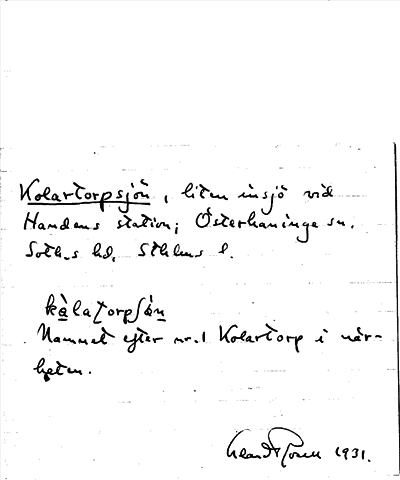 Kolartorpsjön, liten insjö vid
Handens station; Österhaninge sn.
Soth.s hd, Sthlms l.
kàlatorpʃǿn
Namnet efter nr. 1 Kolartorp i när-
heten.
1931.